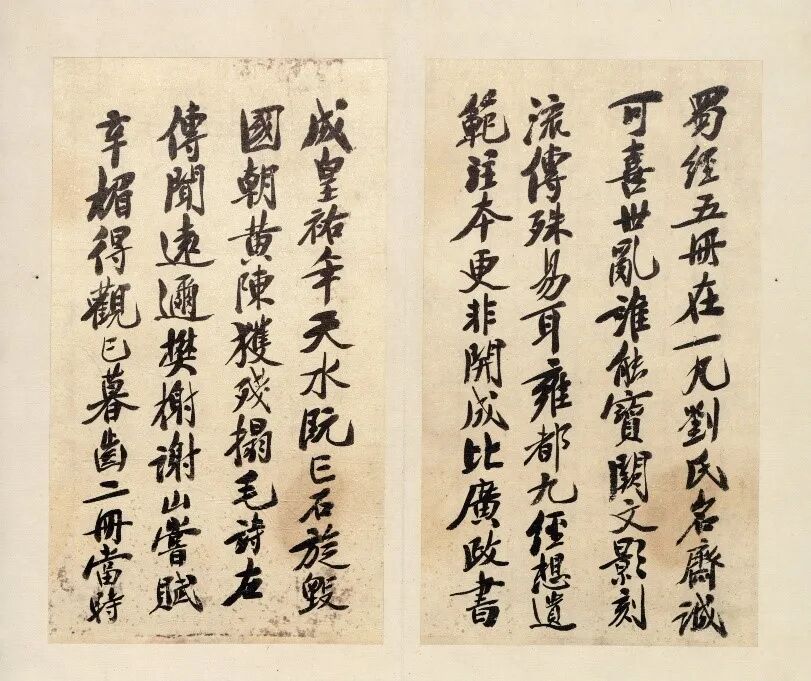 蜀經五册在一凡劉氏名齋誠
可喜世亂誰能寶闕文影刻
流傳殊易耳雍都九經想遺
範注本更非開成比廣政書
成皇祐年天水阮亡石旋毀
國朝黃陳獲殘搨毛詩左
傳聞遠邇樊榭謝山嘗賦
辛楣得觀已暮齒二册當時